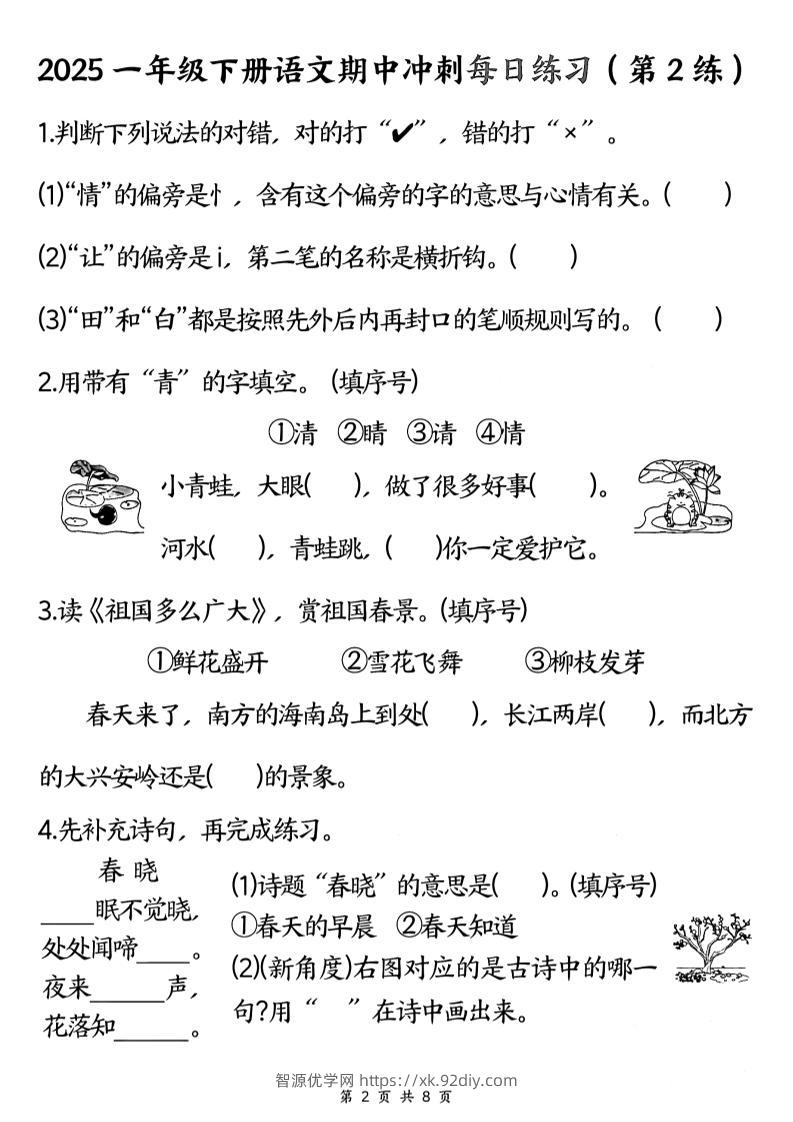 2025 一年级下册语文期中冲刺每日练习（第 2 练）
1.判断下列说法的对错，对的打“✔”，错的打“×”。
(1)“情”的偏旁是忄，含有这个偏旁的字的意思与心情有关。(    )
(2)“让”的偏旁是i，第二笔的名称是横折钩。(    )
(3)“田”和“白”都是按照先外后内再封口的笔顺规则写的。(    )
2.用带有“青”的字填空。(填序号)
①清 ②晴 ③请 ④情
小青蛙，大眼(    )，做了很多好事(    )。
河水(    )，青蛙跳，(    )你一定爱护它。
3.读《祖国多么广大》，赏祖国春景。(填序号)
①鲜花盛开 ②雪花飞舞 ③柳枝发芽
春天来了，南方的海南岛上到处(    )，长江两岸(    )，而北方
的大兴安岭还是(    )的景象。
4.先补充诗句，再完成练习。
春 晓
____眠不觉晓，
处处闻啼____。
夜来______声，
花落知______。
(1)诗题“春晓”的意思是(    )。(填序号)
①春天的早晨 ②春天知道
(2)(新角度)右图对应的是古诗中的哪一
句?用“    ”在诗中画出来。
智源优学网 https://xk.92diy.com
第 2 页 共 8 页